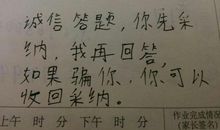 诚信答题,你先采
纳,我再回答,
如果骗你,你可以
收回采纳。
上午 时 分 下午 时 分
作业完成情况
(家长签名)